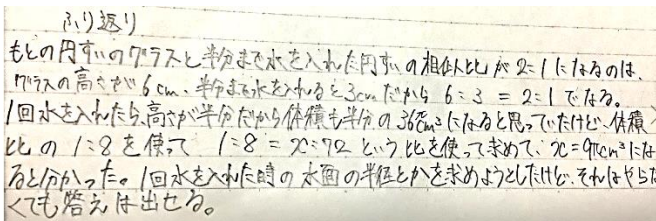 ふり返り
もとの円すいのグラスと半分まで水を入れた円すいの相似比が2:1になるのは、
グラスの高さが6cm、半分まで水を入れると3cmだから6:3=2:1でなる。
1回水を入れたら、高さが半分だから体積も半分の36πcm³になると思っていたけど、体積
比の1:8を使って 1:8=x:72という比を使って求めて、x=9πcm³にな
ると分かった。1回水を入れた時の水面の半径とかを求めようとしたけど、それはやらな
くても答えは出せる。